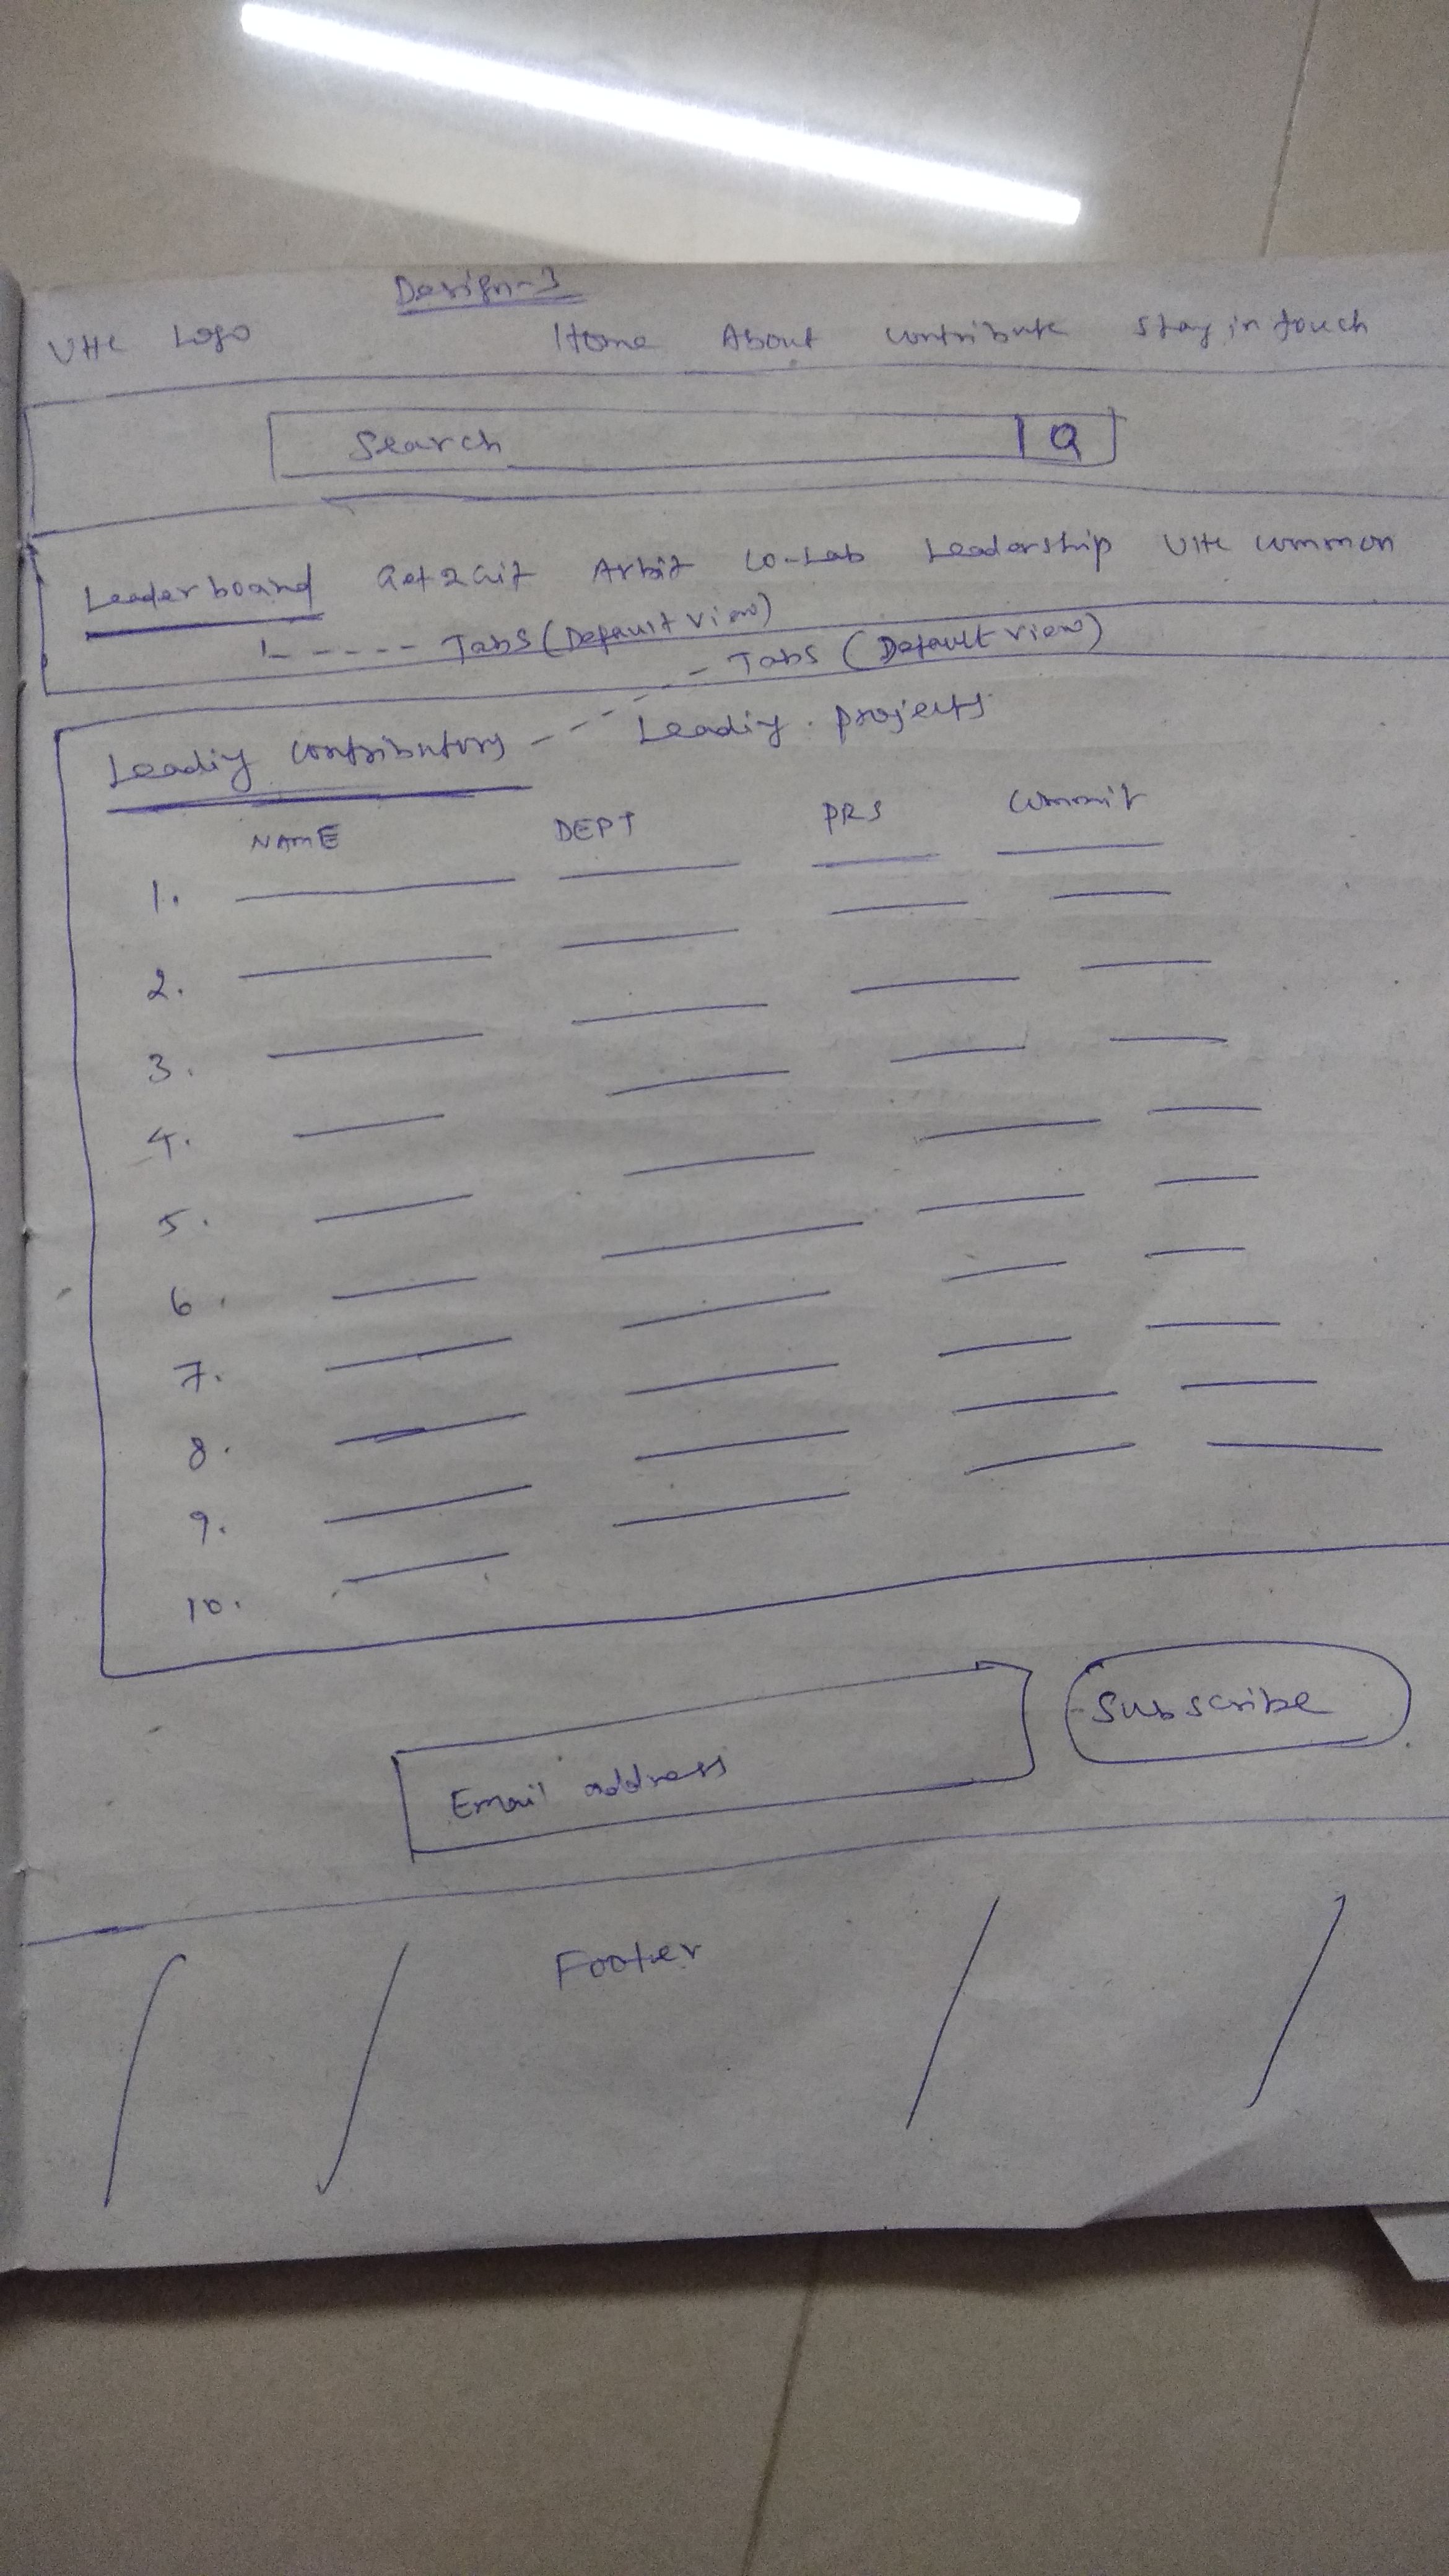 Design-3
UHC Logo Home About contribute Stay in touch
Search Q
Leaderboard Get2Git Arbit Co-Lab Leadership UHC common
Tabs (Default view)
Tabs (Default view)
Leading contributors Leading projects
NAME DEPT PRS Commit
1.
2.
3.
4.
5.
6.
7.
8.
9.
10.
Email address Subscribe
Footer